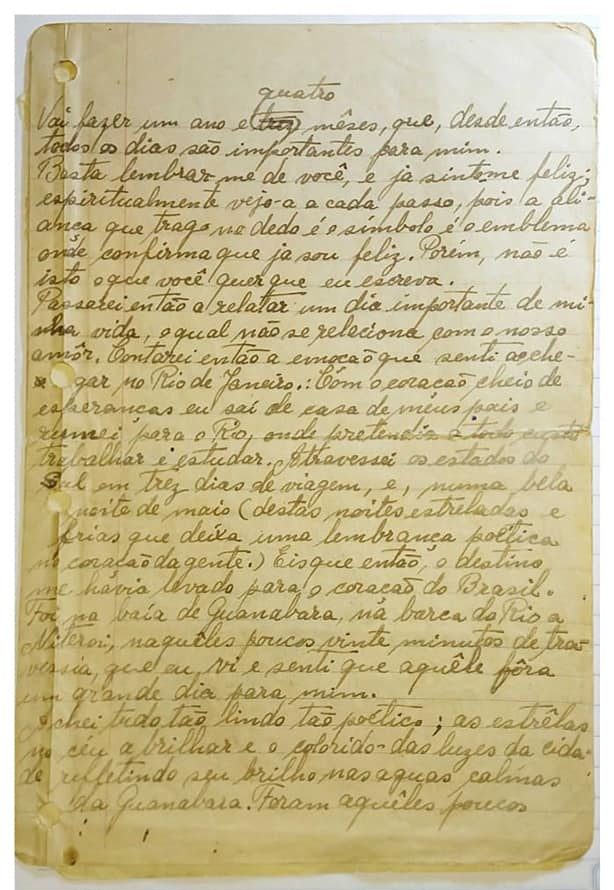 quatro
Vai fazer um ano e trez mêses, que, desde então,
todos os dias são importantes para mim.
Basta lembrar-me de você, e ja sintome feliz;
espiritualmente vejo-a a cada passo, pois a ali-
anca que trago no dedo é o símbolo é o emblema
onde confirma que ja sou feliz. Porém, não é
isto o que você quer que eu escreva.
Passarei então a relatar um dia importante de mi-
nha vida, o qual não se relaciona com o nosso
amôr. Contarei então a emocão que senti ao che-
gar no Rio de Janeiro.: Com o coracão cheio de
esperancas eu saí de casa de meus pais e
rumei para o Rio, onde pretendia a todo custo
trabalhar e estudar. Atravessei os estados do
Sul em trez dias de viagem, e, numa bela
noite de maio (destas noites estreladas e
frias que deixa uma lembranca poética
no coracão da gente.) Eis que então, o destino
me havia levado para o coracão do Brasil.
Foi na baía de Guanabara, na barca do Rio a
Niteroi, naquêles poucos vinte minutos de tra-
vessia, que eu, vi e senti que aquêle fôra
um grande dia para mim.
Achei tudo tão lindo tão poético; as estrêlas
no céu a brilhar e o colorido das luzes da cida-
de refletindo seu brilho nas aguas calmas
da Guanabara. Foram aquêles poucos